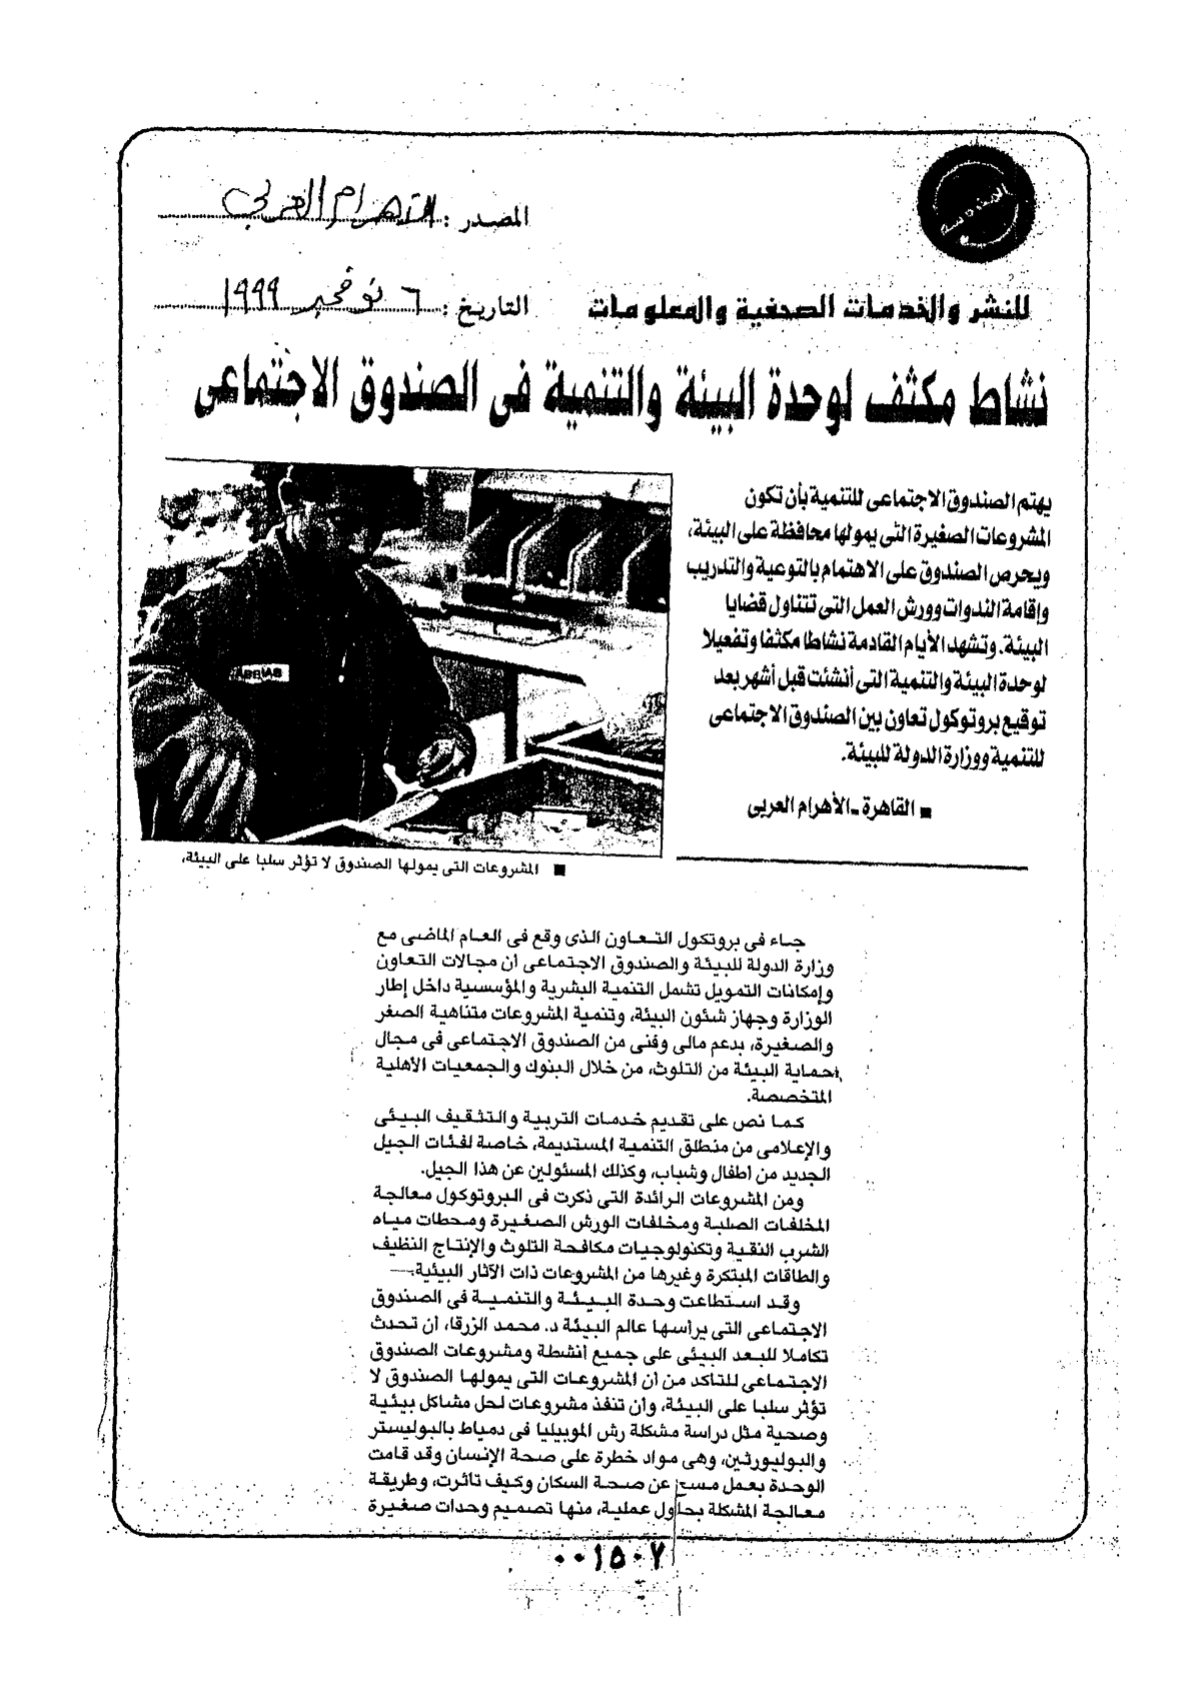 المصدر : الأهرام العربي
للنشر والخدمات الصحفية والمعلومات
التاريخ : ٦ نوفمبر ١٩٩٩
نشاط مكثف لوحدة البيئة والتنمية فى الصندوق الاجتماعى
يهتم الصندوق الاجتماعى للتنمية بأن تكون
المشروعات الصغيرة التى يمولها محافظة على البيئة،
ويحرص الصندوق على الاهتمام بالتوعية والتدريب
وإقامة الندوات وورش العمل التى تتناول قضايا
البيئة. وتشهد الأيام القادمة نشاطا مكثفا وتفعيلا
لوحدة البيئة والتنمية التى أنشئت قبل أشهر بعد
توقيع بروتوكول تعاون بين الصندوق الاجتماعى
للتنمية ووزارة الدولة للبيئة.
■ القاهرة ـ الأهرام العربى
■ المشروعات التى يمولها الصندوق لا تؤثر سلبا على البيئة،
جاء فى بروتكول التعاون الذى وقع فى العام الماضى مع
وزارة الدولة للبيئة والصندوق الاجتماعى أن مجالات التعاون
وإمكانات التمويل تشمل التنمية البشرية والمؤسسية داخل إطار
الوزارة وجهاز شئون البيئة، وتنمية المشروعات متناهية الصغر
والصغيرة، بدعم مالى وفنى من الصندوق الاجتماعى فى مجال
حماية البيئة من التلوث، من خلال البنوك والجمعيات الأهلية
المتخصصة.
كما نص على تقديم خدمات التربية والتثقيف البيئى
والإعلامى من منطلق التنمية المستديمة، خاصة لفئات الجيل
الجديد من أطفال وشباب، وكذلك المسئولين عن هذا الجيل.
ومن المشروعات الرائدة التى ذكرت فى البروتوكول معالجة
المخلفات الصلبة ومخلفات الورش الصغيرة ومحطات مياه
الشرب النقية وتكنولوجيات مكافحة التلوث والإنتاج النظيف
والطاقات المبتكرة وغيرها من المشروعات ذات الآثار البيئية.
وقد استطاعت وحدة البيئة والتنمية فى الصندوق
الاجتماعى التى يرأسها عالم البيئة د. محمد الزرقا، أن تحدث
تكاملا للبعد البيئى على جميع أنشطة ومشروعات الصندوق
الاجتماعى للتأكد من أن المشروعات التى يمولها الصندوق لا
تؤثر سلبا على البيئة، وأن تنفذ مشروعات لحل مشاكل بيئية
وصحية مثل دراسة مشكلة رش الموبيليا فى دمياط بالبوليستر
والبوليورثين، وهى مواد خطرة على صحة الإنسان وقد قامت
الوحدة بعمل مسح عن صحة السكان وكيف تأثرت، وطريقة
معالجة المشكلة بحلول عملية، منها تصميم وحدات صغيرة
٠٠١٥٠٧